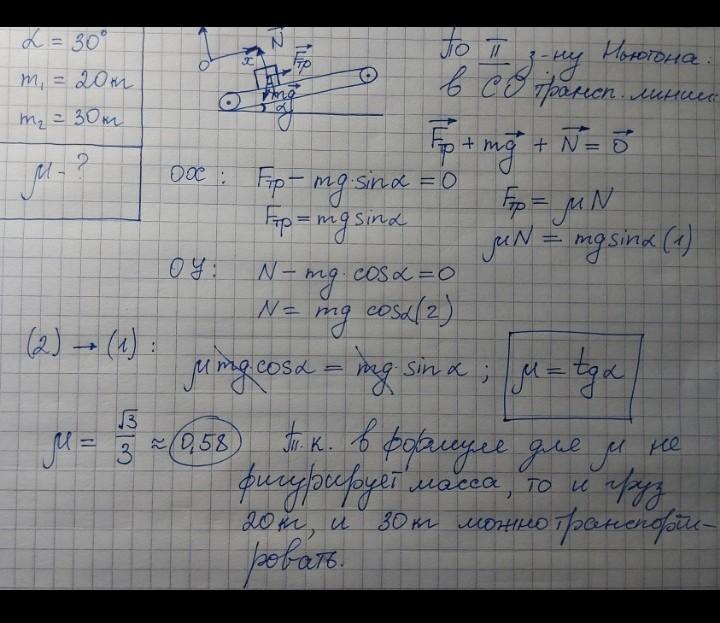 α = 30°
m₁ = 20 кг
m₂ = 30 кг
μ - ?
N
Fтр
x
O
mg
α
По II з-ну Ньютона:
в СО трансп. линии
Fтр + mg + N = 0
OX: Fтр - mg·sinα = 0
Fтр = mg sinα
Fтр = μN
μN = mg sinα (1)
OY: N - mg·cosα = 0
N = mg cosα (2)
(2) → (1):
μ mg·cosα = mg·sinα ; μ = tgα
μ = √3/3 ≈ 0,58
Т.к. в формуле для μ не
фигурирует масса, то и груз
20 кг, и 30 кг можно транспорти-
ровать.